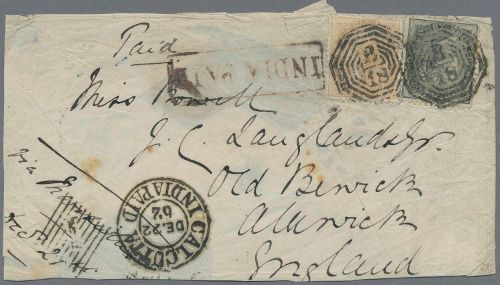 Paid
INDIA PAID
Miss Powell
J. C. Langlands Esqr.
Old Bewick
Alnwick
England
via
CALCUTTA
DE. 22
62
INDIA PAID